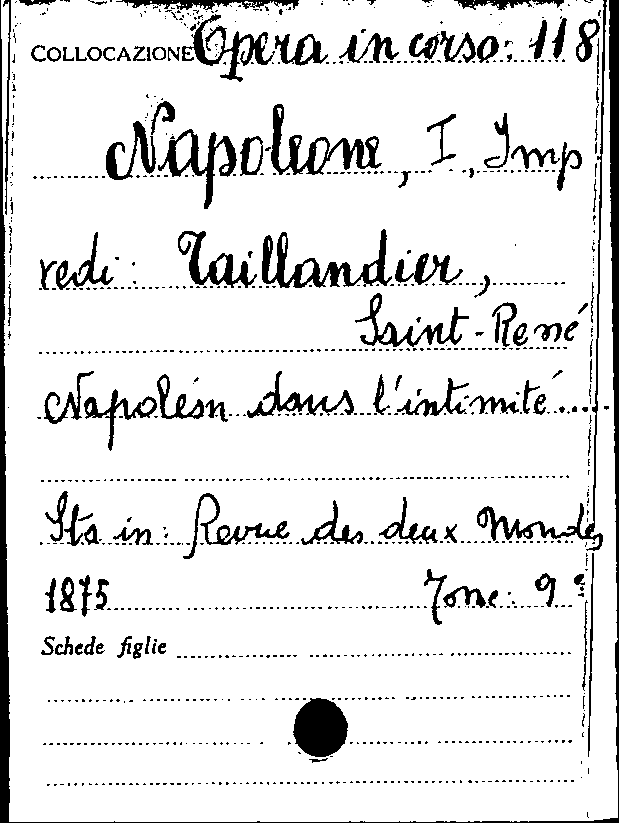 COLLOCAZIONE Opera in corso: 118
Napoleone, I, Imp
vedi: Taillandier,
Saint-René
Napoléon dans l'intimité.....
Sta in: Revue des deux Mondes,
1875 Tome: 9e
Schede figlie